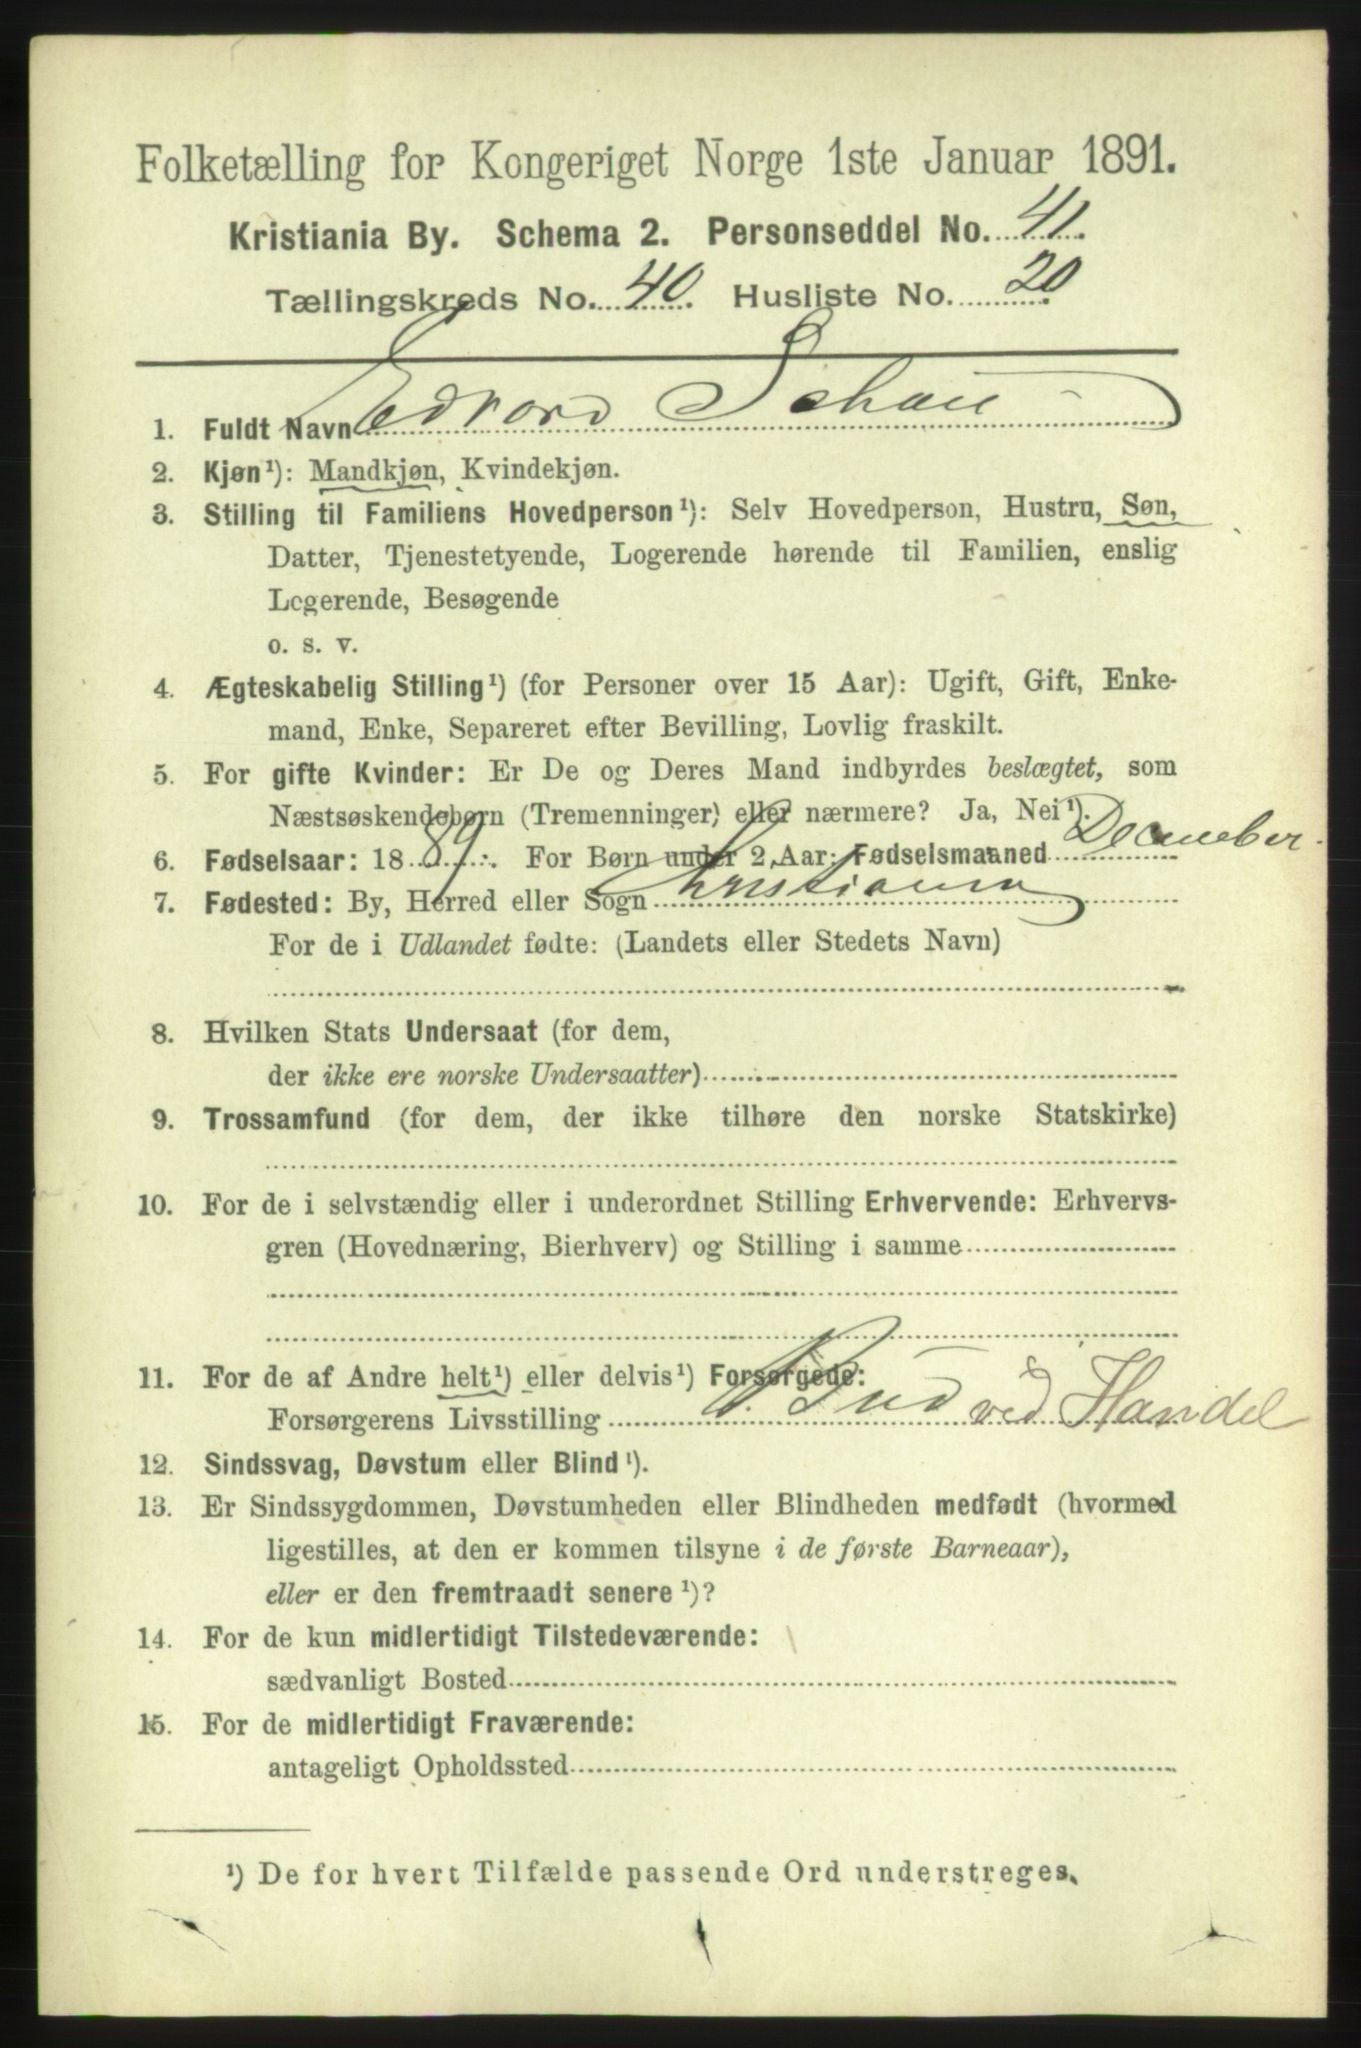 Folketælling for Kongeriget Norge 1ste Januar 1891.
Kristiania By. Schema 2. Personseddel No. 41.
Tællingskreds No. 40. Husliste No. 20.
1. Fuldt Navn Edvard Schou
2. Kjøn¹): Mandkjøn, Kvindekjøn.
3. Stilling til Familiens Hovedperson¹): Selv Hovedperson, Hustru, Søn,
Datter, Tjenestetyende, Logerende hørende til Familien, enslig
Logerende, Besøgende
o. s. v.
4. Ægteskabelig Stilling¹) (for Personer over 15 Aar): Ugift, Gift, Enke-
mand, Enke, Separeret efter Bevilling, Lovlig fraskilt.
5. For gifte Kvinder: Er De og Deres Mand indbyrdes beslægtet, som
Næstsøskendebørn (Tremenninger) eller nærmere? Ja, Nei¹).
6. Fødselsaar: 1889. For Børn under 2 Aar: Fødselsmaaned December.
7. Fødested: By, Herred eller Sogn Christiania
For de i Udlandet fødte: (Landets eller Stedets Navn)
8. Hvilken Stats Undersaat (for dem,
der ikke ere norske Undersaatter)
9. Trossamfund (for dem, der ikke tilhøre den norske Statskirke)
10. For de i selvstændig eller i underordnet Stilling Erhvervende: Erhvervs-
gren (Hovednæring, Bierhverv) og Stilling i samme
11. For de af Andre helt¹) eller delvis¹) Forsørgede:
Forsørgerens Livsstilling Bud ved Handel
12. Sindssvag, Døvstum eller Blind¹).
13. Er Sindssygdommen, Døvstumheden eller Blindheden medfødt (hvormed
ligestilles, at den er kommen tilsyne i de første Barneaar),
eller er den fremtraadt senere¹)?
14. For de kun midlertidigt Tilstedeværende:
sædvanligt Bosted
15. For de midlertidigt Fraværende:
antageligt Opholdssted
¹) De for hvert Tilfælde passende Ord understreges.